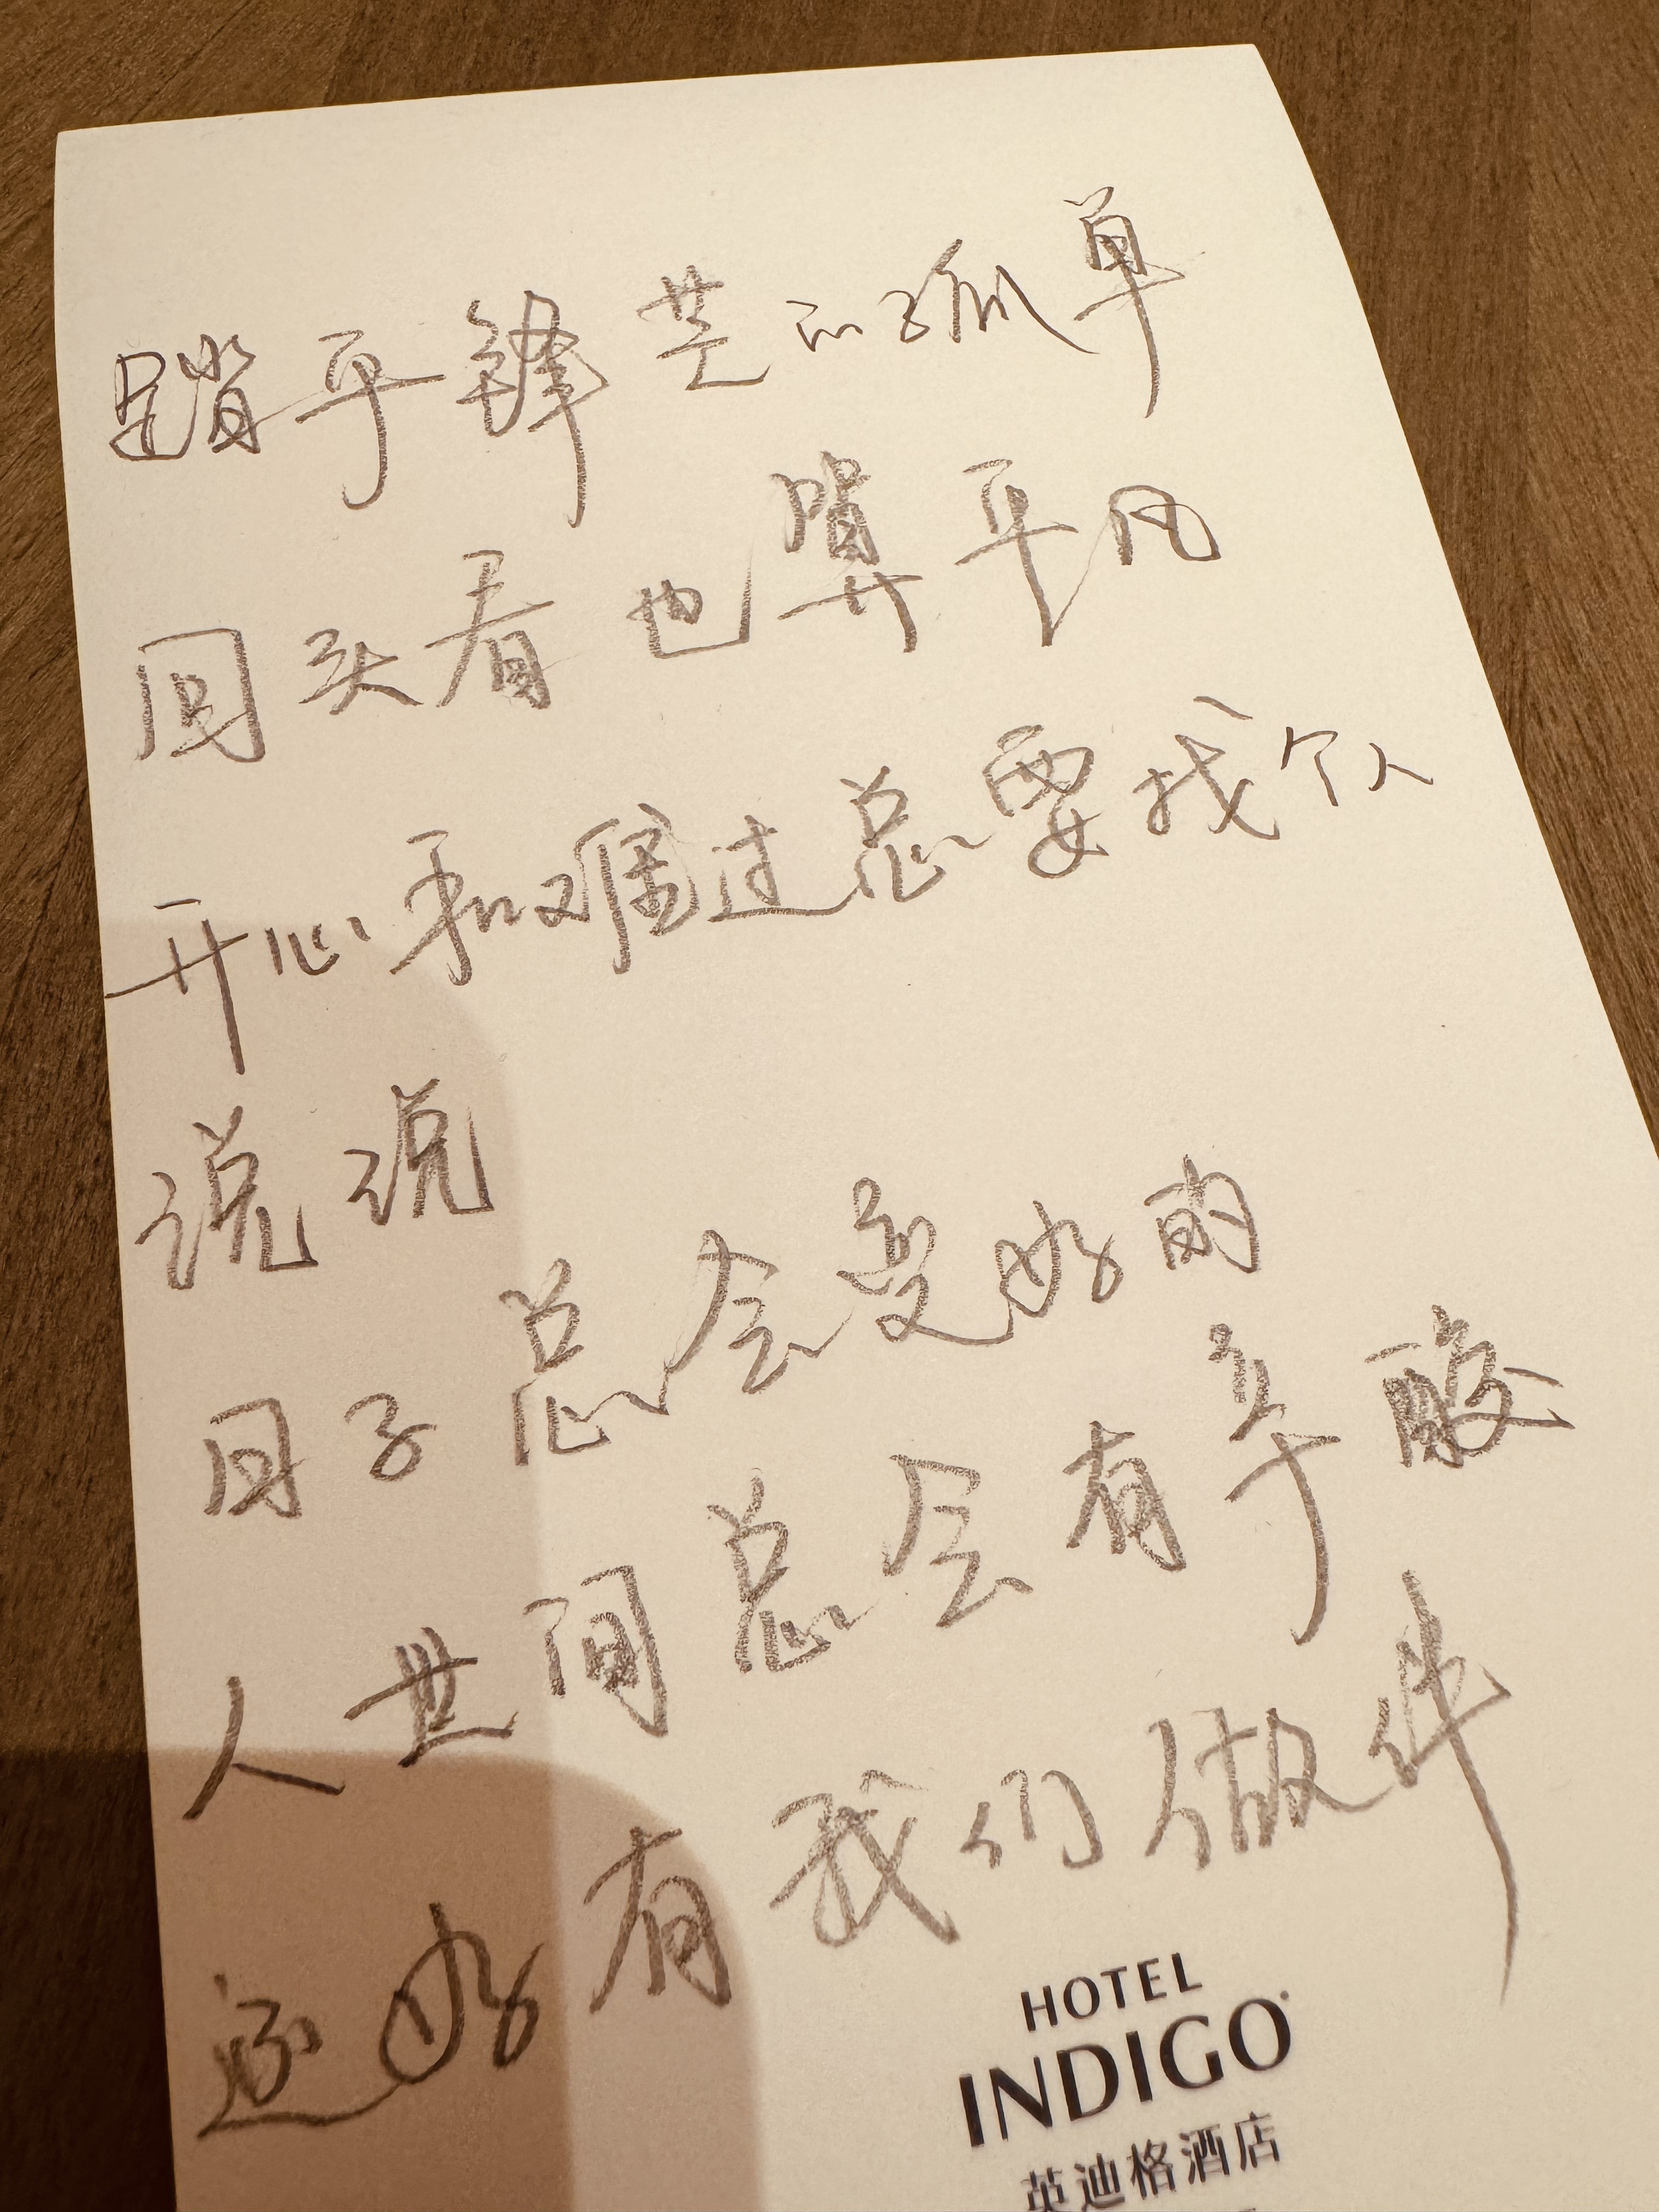 踏平锋芒的孤单
回头看也算平凡
开心和难过总要找个人
说说
日子总会变好的
人世间总会有辛酸
还好有我们做伴
HOTEL
INDIGO
英迪格酒店